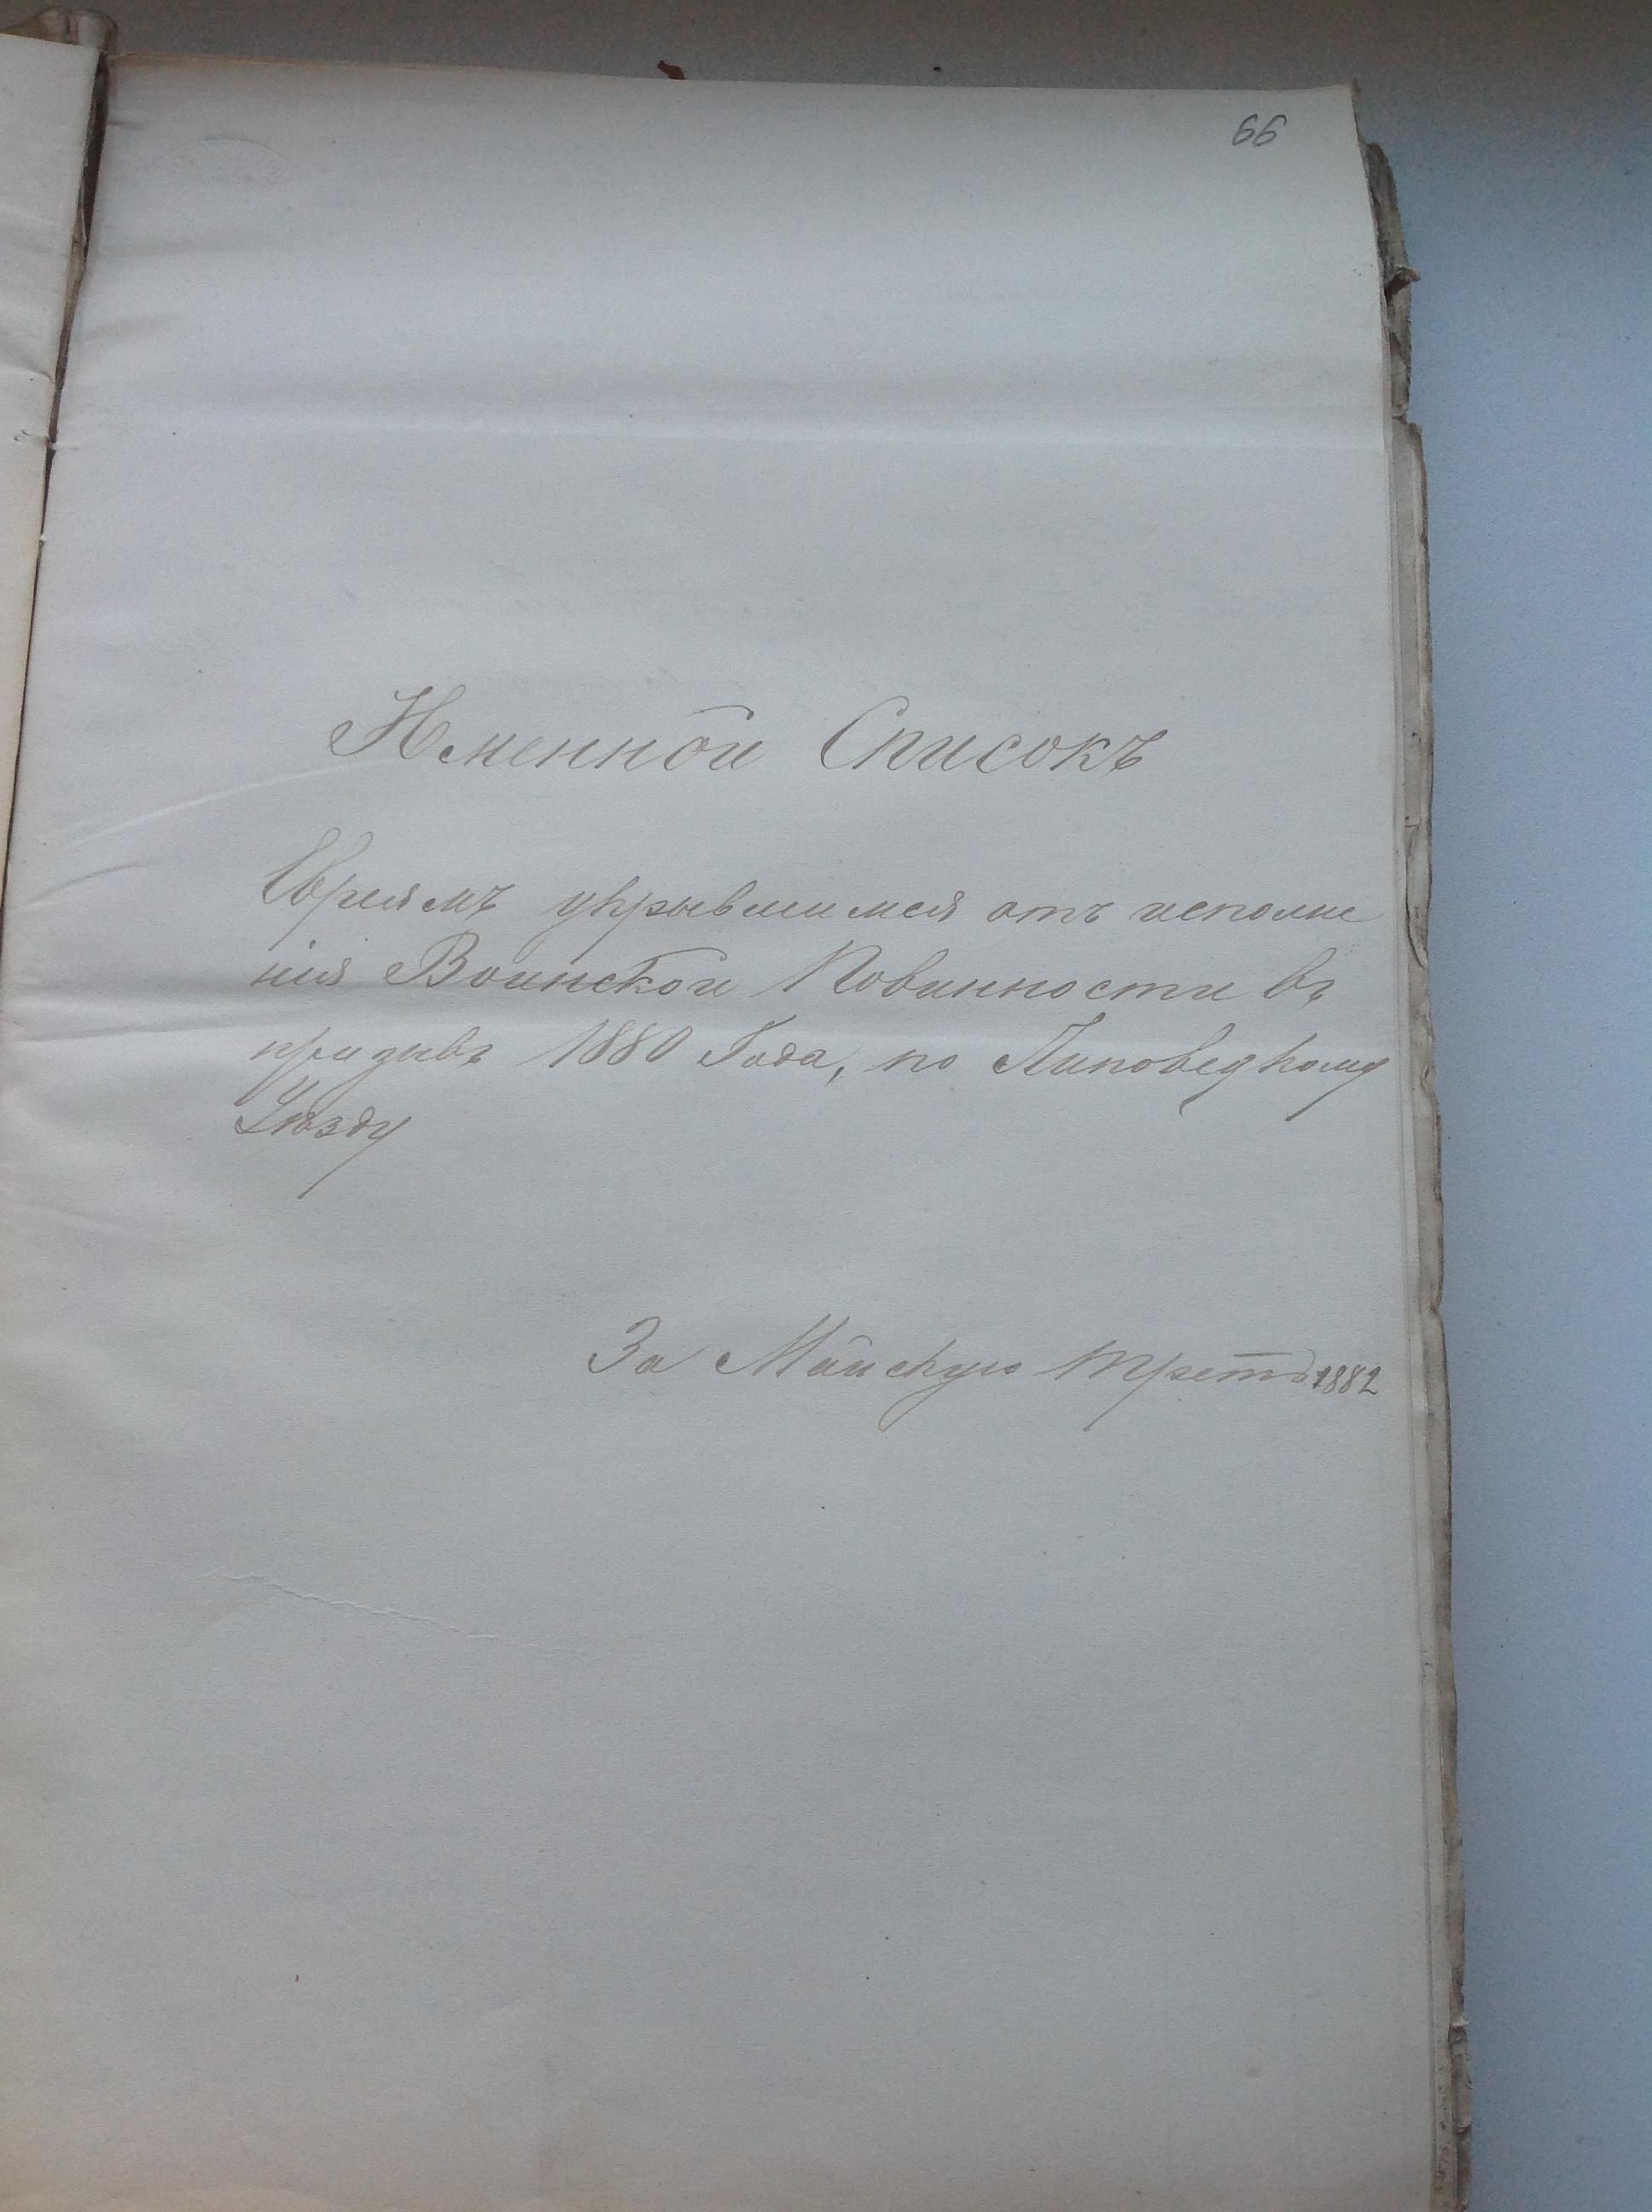 66
Именной Списокъ
Евреямъ укрывшимся отъ исполне
нія Воинской Повинности въ
призывъ 1880 Года, по Липовецкому
Уѣзду
За Майскую треть 1882